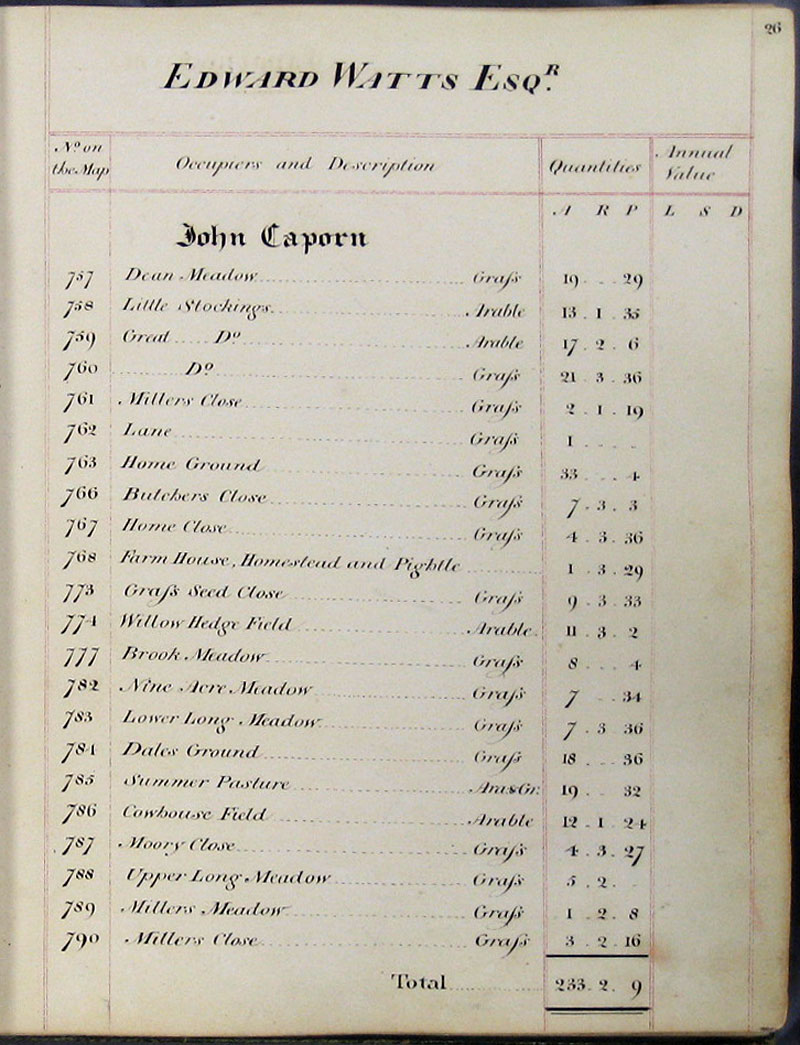 26
EDWARD WATTS ESQ.R
No on the Map Occupiers and Description Quantities Annual Value
A R P L S D
John Caporn
757 Dean Meadow Graſs 19 . . 29
758 Little Stockings Arable 13 . 1 . 35
759 Great Do Arable 17 . 2 . 6
760 Do Graſs 21 . 3 . 36
761 Millers Close Graſs 2 . 1 . 19
762 Lane Graſs 1 . . .
763 Home Ground Graſs 33 . . 4
766 Butchers Close Graſs 7 . 3 . 3
767 Home Close Graſs 4 . 3 . 36
768 Farm House, Homestead and Pightle 1 . 3 . 29
773 Graſs Seed Close Graſs 9 . 3 . 33
774 Willow Hedge Field Arable 11 . 3 . 2
777 Brook Meadow Graſs 8 . . 4
782 Nine Acre Meadow Graſs 7 . . 34
783 Lower Long Meadow Graſs 7 . 3 . 36
784 Dales Ground Graſs 18 . . 36
785 Summer Pasture Ara&Gr: 19 . . 32
786 Cowhouse Field Arable 12 . 1 . 24
787 Moory Close Graſs 4 . 3 . 27
788 Upper Long Meadow Graſs 5 . 2 .
789 Millers Meadow Graſs 1 . 2 . 8
790 Millers Close Graſs 3 . 2 . 16
Total 233 . 2 . 9